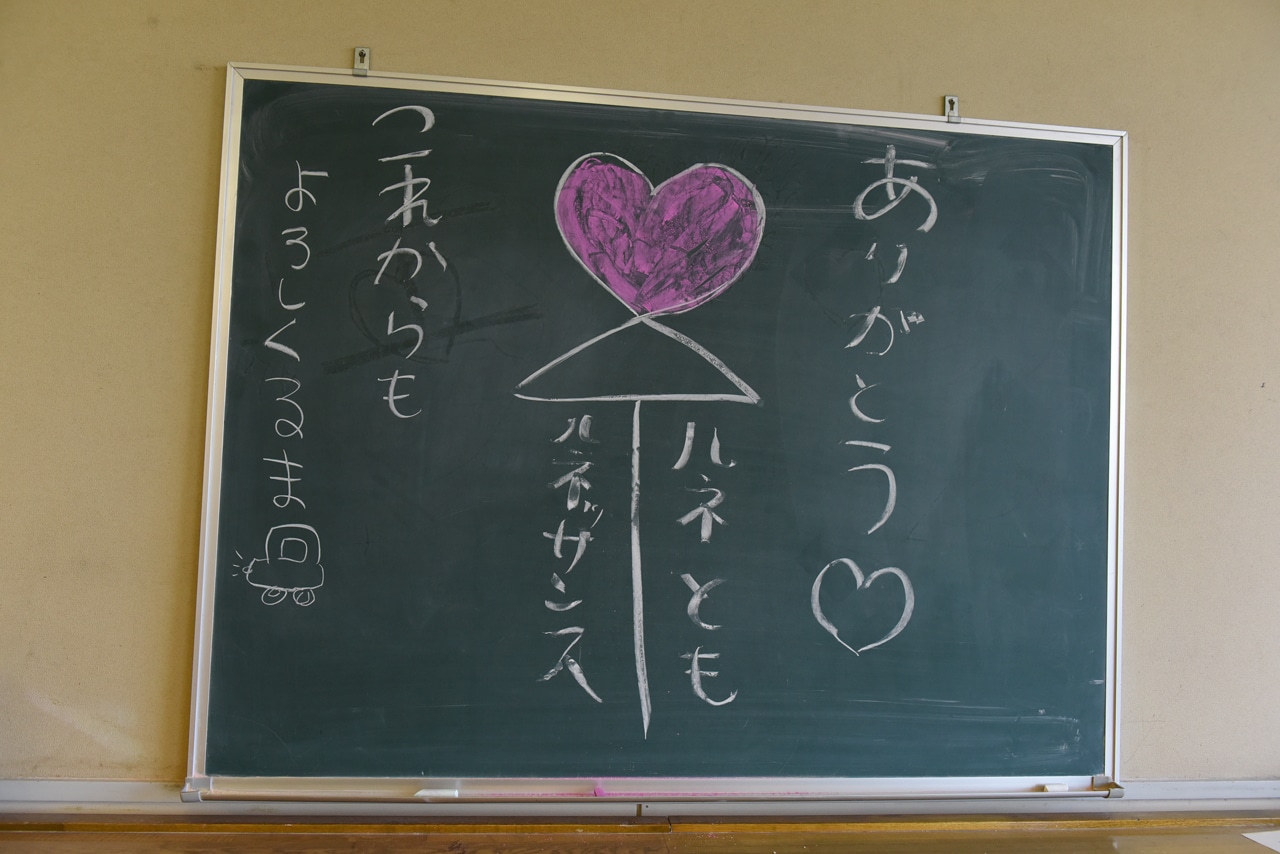 ありがとう
ルネとも
ルネッサンス
これからも
よろしくるま